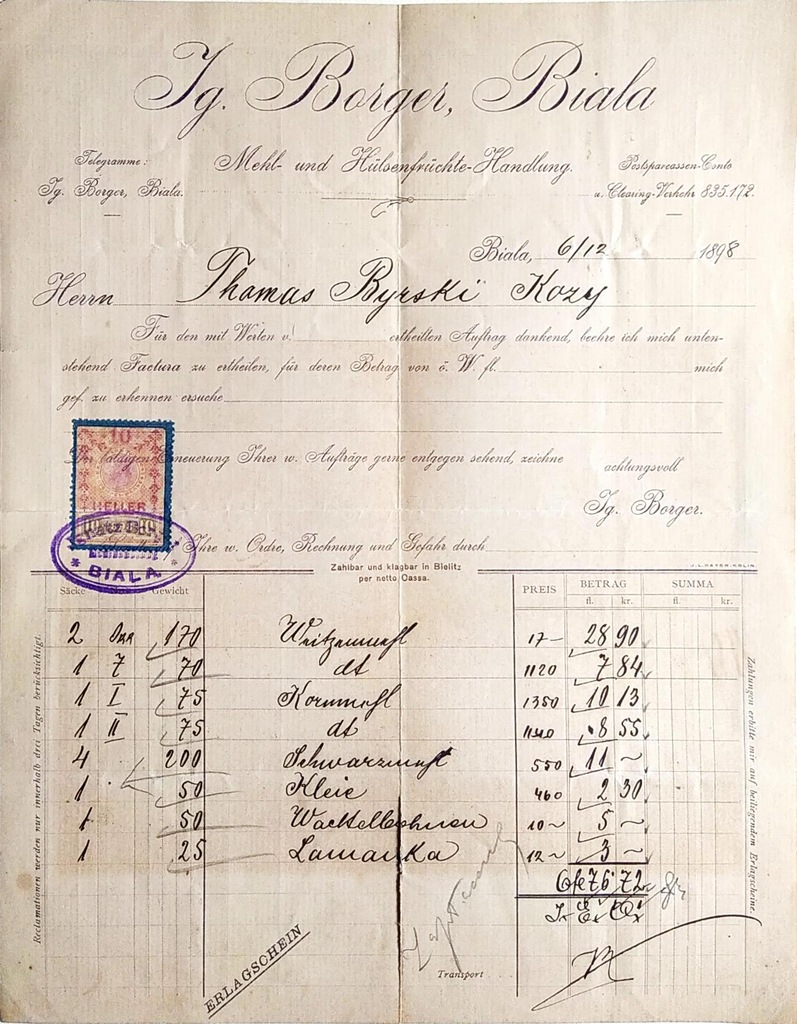 Ig. Borger, Biala
Telegramme:
Ig. Borger, Biala.
Mehl- und Hülsenfrüchte-Handlung.
Postsparcassen-Conto
u. Clearing-Verkehr 835.172.
Biala, 6/12 1898
Herrn Thomas Byrski Kozy
Für den mit Werten v. ertheilten Auftrag dankend, beehre ich mich unten-
stehend Factura zu ertheilen, für deren Betrag von ö. W. fl. mich
gef. zu erkennen ersuche
10
HELLER
Der baldigen Erneuerung Ihrer w. Aufträge gerne entgegen sehend, zeichne achtungsvoll
Ig. Borger.
BIALA
Ihre w. Ordre, Rechnung und Gefahr durch
Zahlbar und klagbar in Bielitz
per netto Cassa.
Säcke Gewicht PREIS BETRAG SUMMA
fl. kr. fl. kr.
2 170 Weitzenmehl 17— 28 90
1 70 dt 1120 7 84
1 I 75 Kornmehl 1350 10 13
1 II 75 dt 1140 8 55
4 200 Schwarzmehl 550 11 ~
1 50 Kleie 460 2 30
1 50 10~ 5 ~
1 25 Lamanka 12~ 3 ~
76 72
Transport
ERLAGSCHEIN
Reclamationen werden nur innerhalb drei Tagen berücksichtigt.
Zahlungen erbitte mir auf beiliegendem Erlagscheine.